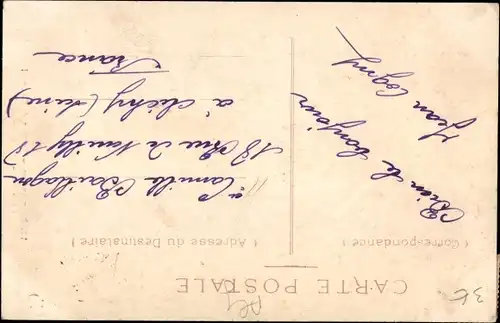 CARTE POSTALE
( Correspondance )
( Adresse du Destinataire )
Bien le bonjour
Jean
Camille
18 Rue de Neuilly 18
à Clichy (Seine)
France